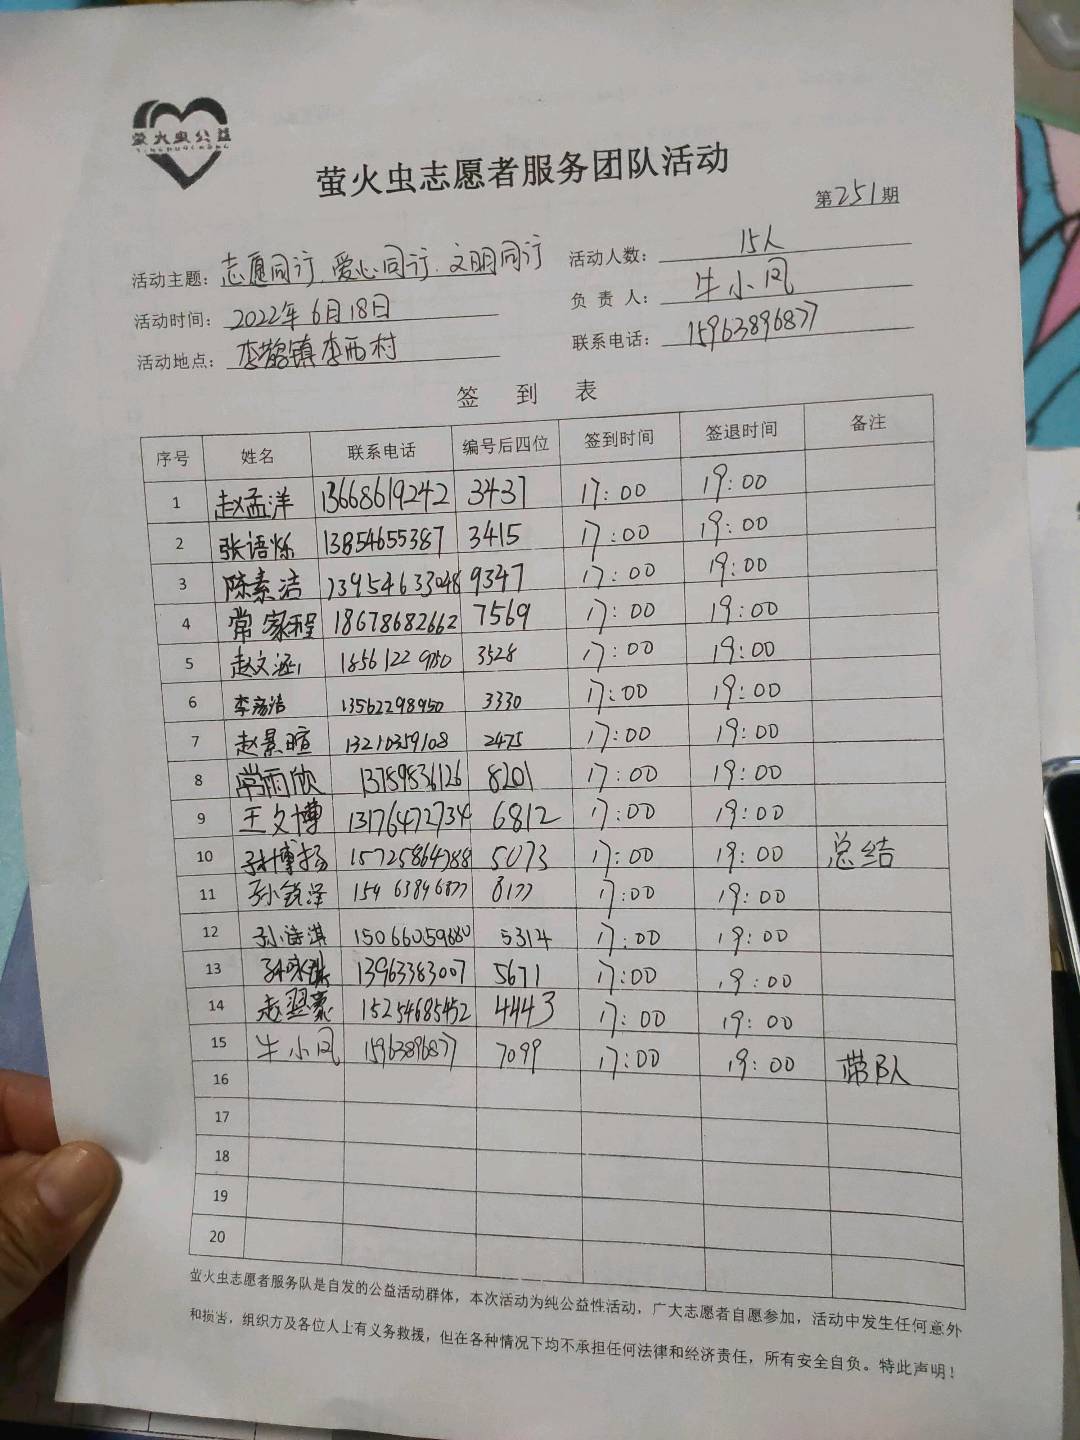 萤火虫公益
萤火虫志愿者服务团队活动
第251期
活动主题：志愿同行、爱心同行、文明同行
活动人数：15人
活动时间：2022年6月18日
负责人：牛小风
活动地点：李鹊镇李西村
联系电话：15963896877
签到表
序号 姓名 联系电话 编号后四位 签到时间 签退时间 备注
1 赵孟洋 13668619242 3437 17:00 19:00
2 张语烁 13854655387 3415 17:00 19:00
3 陈素洁 13954633048 9347 17:00 19:00
4 常家程 18678682662 7569 17:00 19:00
5 赵文涵 3528 17:00 19:00
6 13562298950 3330 17:00 19:00
7 赵景暄 13210359108 2475 17:00 19:00
8 常雨欣 8201 17:00 19:00
9 王文博 13176472734 6812 17:00 19:00
10 孙博扬 5073 17:00 19:00 总结
11 孙锐泽 8177 17:00 19:00
12 孙诗淇 15066059680 5314 17:00 19:00
13 13963383007 5671 17:00 19:00
14 赵翌豪 15254685452 4443 17:00 19:00
15 牛小风 15963896877 7099 17:00 19:00 带队
16
17
18
19
20
萤火虫志愿者服务队是自发的公益活动群体，本次活动为纯公益性活动，广大志愿者自愿参加，活动中发生任何意外
和损害，组织方及各位人上有义务救援，但在各种情况下均不承担任何法律和经济责任，所有安全自负。特此声明！